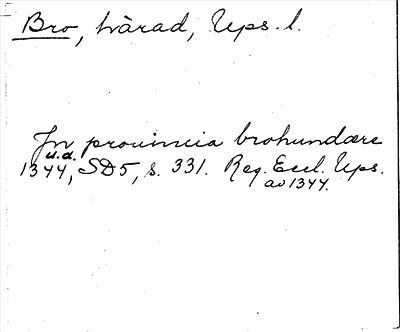 Bro, härad, Ups. l.
In prouincia brohundære
u.a.
1344, SD5, s. 331. Reg. Eccl. Ups.
av 1344.